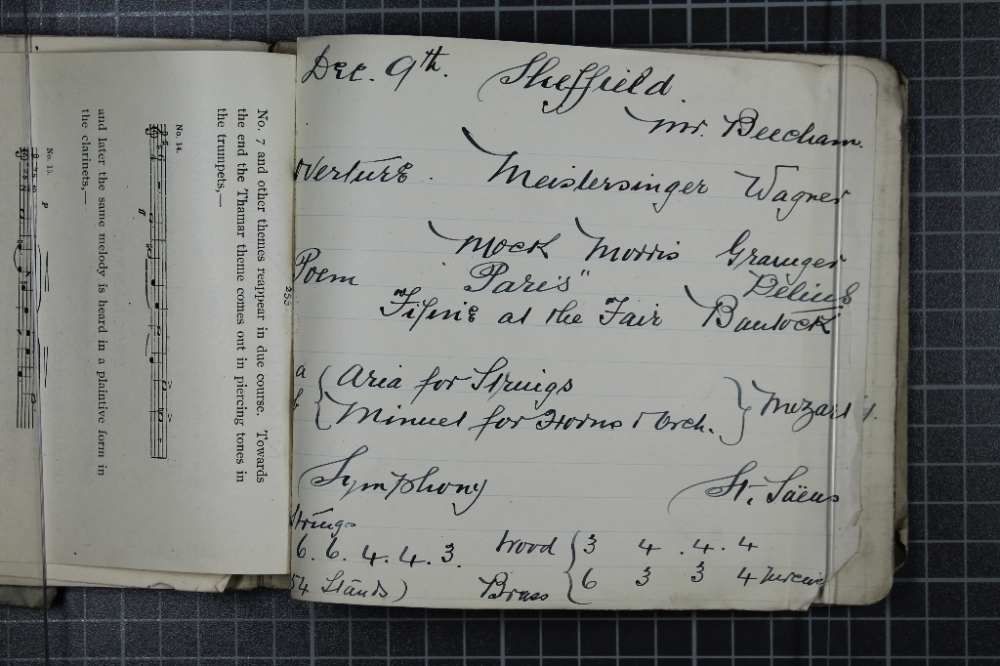 No. 7 and other themes reappear in due course. Towards
the end the Thamar theme comes out in piercing tones in
the trumpets,—
No. 14.
ff
and later the same melody is heard in a plaintive form in
the clarinets,—
No. 15.
p
255
Dec. 9th. Sheffield
Mr. Beecham.
verture. Meistersinger Wagner
Mock Morris Grainger
Poem "Paris" Delius
Fifine at the Fair Bantock
a { Aria for Strings
b { Minuet for Horns & Orch. } Mozart
Symphony St. Saëns
Strings
6. 6. 4. 4. 3. Wood { 3 4 . 4 . 4
4 Stands) Brass { 6 3 3 4